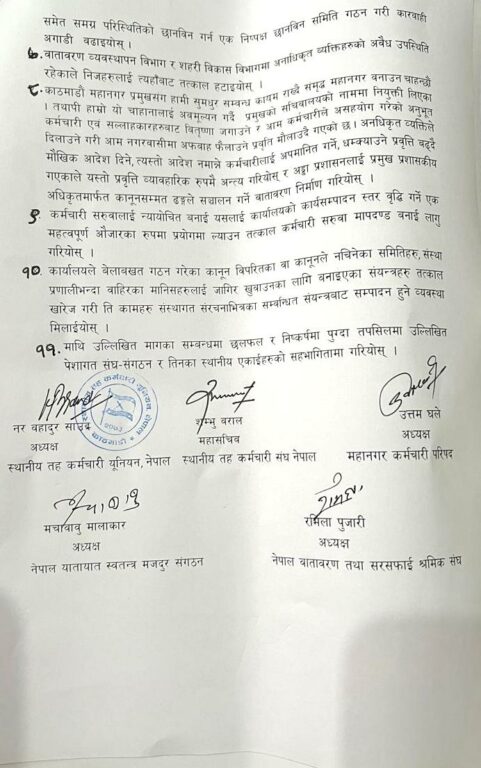 समेत समग्र परिस्थितिको छानविन गर्न एक निष्पक्ष छानविन समिति गठन गरी कारवाही
अगाडी बढाइयोस् ।
७. वातावरण व्यवस्थापन विभाग र शहरी विकास विभागमा अनाधिकृत व्यक्तिहरुको अवैध उपस्थिति
रहेकाले निजहरुलाई त्यहाँबाट तत्काल हटाइयोस् ।
८. काठमाडौं महानगर प्रमुखसंग हामी सुमधुर सम्बन्ध कायम राख्दै समृद्ध महानगर बनाउन चाहन्छौं
। तथापी हाम्रो यो चाहानालाई अवमूल्यन गर्दै प्रमुखको सचिवालयको नाममा नियुक्ती लिएका
कर्मचारी एवं सल्लाहकारहरुबाट वितृष्णा जगाउने र आम कर्मचारीले असहयोग गरेको अनुभूत
दिलाउने गरी आम नगरवासीमा अफवाह फैलाउने प्रवृति मौलाउदै गएको छ। अनधिकृत व्यक्तिले
मौखिक आदेश दिने, त्यस्तो आदेश नमान्ने कर्मचारीलाई अपमानित गर्ने, धम्क्याउने प्रवृत्ति बढ्दै
गएकाले यस्तो प्रवृत्ति व्यावहारिक रुपमै अन्त्य गरियोस् र अड्डा प्रशासनलाई प्रमुख प्रशासकीय
अधिकृतमार्फत कानूनसम्मत ढङ्गले सञ्चालन गर्ने बातावरण निर्माण गरियोस् ।
९. कर्मचारी सरुवालाई न्यायोचित बनाई यसलाई कार्यालयको कार्यसम्पादन स्तर वृद्धि गर्ने एक
महत्वपूर्ण औजारका रुपमा प्रयोगमा ल्याउन तत्काल कर्मचारी सरुवा मापदण्ड बनाई लागु
गरियोस् ।
१०. कार्यालयले बेलाबखत गठन गरेका कानून विपरितका वा कानूनले नचिनेका समितिहरु, संस्था
प्रणालीभन्दा वाहिरका मानिसहरुलाई जागिर खुवाउनका लागि बनाइएका संयन्त्रहरु तत्काल
खारेज गरी ति कामहरु संस्थागत संरचनाभित्रका सम्बन्धित संयन्त्रबाट सम्पादन हुने व्यवस्था
मिलाईयोस् ।
११. माथि उल्लिखित मागका सम्बन्धमा छलफल र निष्कर्षमा पुग्दा तपसिलमा उल्लिखित
पेशागत संघ-संगठन र तिनका स्थानीय एकाईहरुको सहभागितामा गरियोस् ।
नर वहादुर साउद
शम्भु बराल
उत्तम घले
अध्यक्ष
महासचिव
अध्यक्ष
स्थानीय तह कर्मचारी यूनियन, नेपाल
स्थानीय तह कर्मचारी संघ नेपाल
महानगर कर्मचारी परिषद
मचावावु मालाकार
रमिला पुजारी
अध्यक्ष
अध्यक्ष
नेपाल यातायात स्वतन्त्र मजदुर संगठन
नेपाल बातावरण तथा सरसफाई श्रमिक संघ